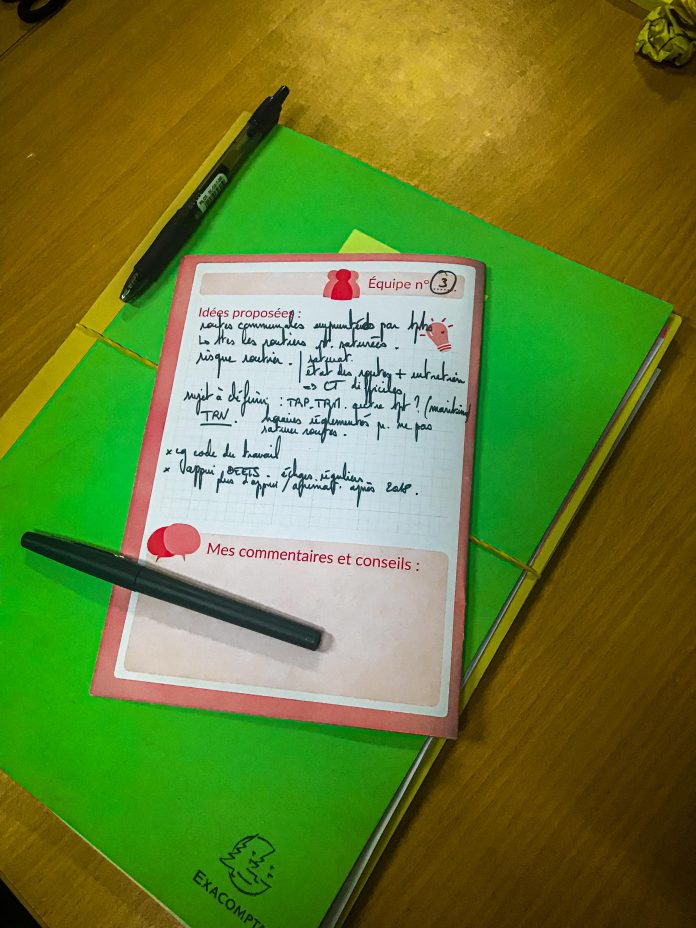 Équipe n° 3
Idées proposées :
routes communales empruntées par
les routiers st. saturées.
risque routier. | saturat.
état des routes + entretien
=> CT difficiles
sujet à définir : TRP_TRM. autre tpt ? (maritime)
TRV horaires réglementés p. ne pas
saturer routes.
x cg code du travail
x appui DEETS. échges réguliers
plus d'appui / après 2018.
Mes commentaires et conseils :
EXACOMPTA